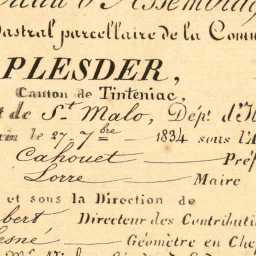 d'Assemblag
adastral parcellaire de la Comm
PLESDER,
Canton de Tinteniac,
t de St. Malo, Dépt. d'Il
in le 27 7bre 1834 sous l'A
Cahouet — Préf
Lorre — Maire
et sous la Direction de
bert Directeur des Contributi
esné — Géomètre en Che